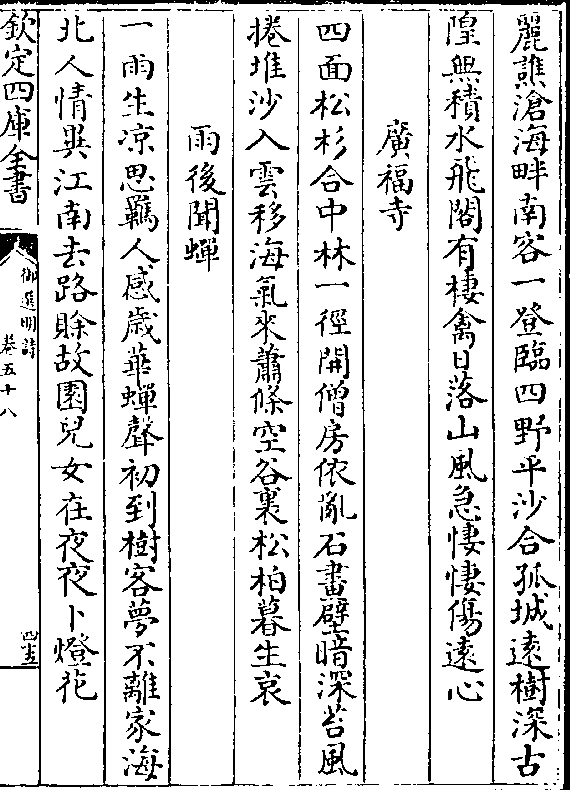 麗譙滄海畔南客一登臨四野平沙合孤城遠樹深古
隍無積水飛閣有棲禽日落山風急悽悽傷遠心
廣福寺
四面松杉合中林一徑開僧房依亂石畫壁暗深苔風
捲堆沙入雲移海氣來蕭條空谷裏松柏暮生哀
雨後聞蟬
一雨生凉思羈人感歲華蟬聲初到樹客夢不離家海
北人情異江南去路賒故園兒女在夜夜卜燈花
欽定四庫全書
御選明詩
卷五十八